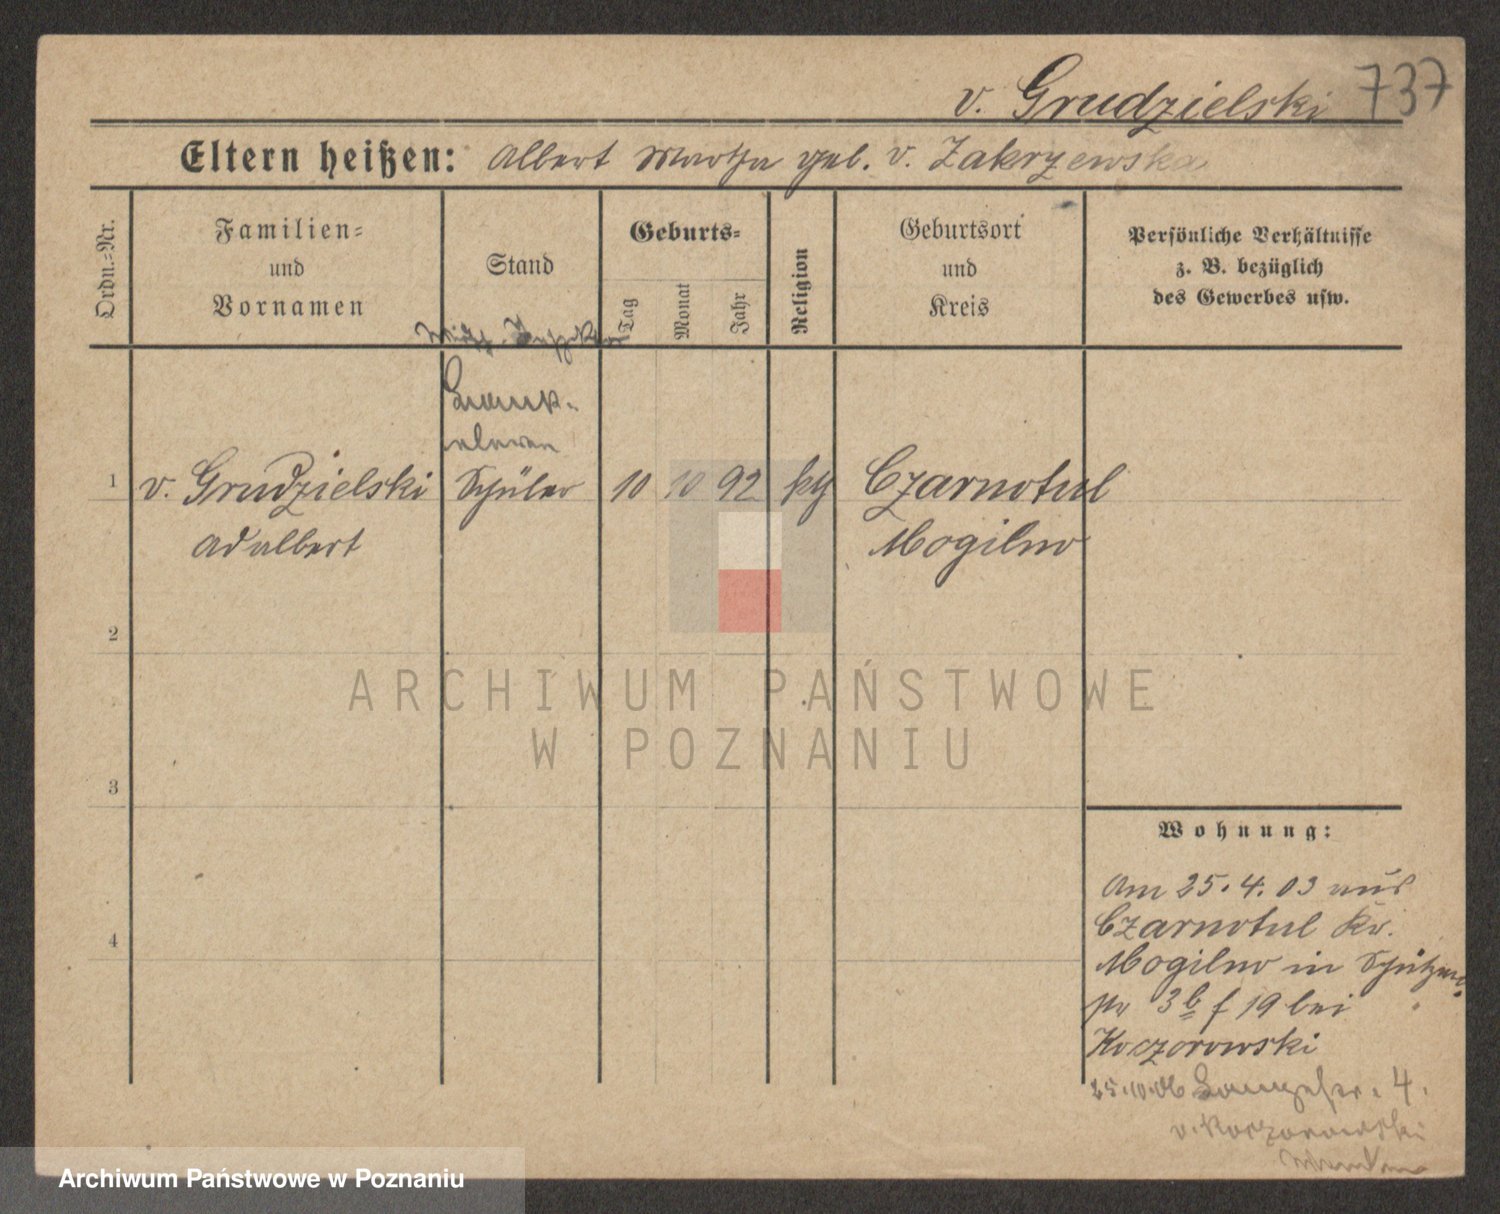 v. Grudzielski 737
Eltern heißen: Albert Martha geb. v. Zakrzewska
Ordn.-Nr.
Familien-
und
Vornamen
Stand
Geburts-
Tag
Monat
Jahr
Religion
Geburtsort
und
Kreis
Persönliche Verhältnisse
z. B. bezüglich
des Gewerbes usw.
1 v. Grudzielski Schüler 10 10 92 kth Czarnotul
Adalbert Mogilno
2
3
4
ARCHIWUM PAŃSTWOWE
W POZNANIU
Wohnung:
Am 25.4.03 aus
Czarnotul Kr.
Mogilno in Schützen
3b f 19 bei
Koczorowski
25.10.06 4.
v. Koczorowski
Archiwum Państwowe w Poznaniu